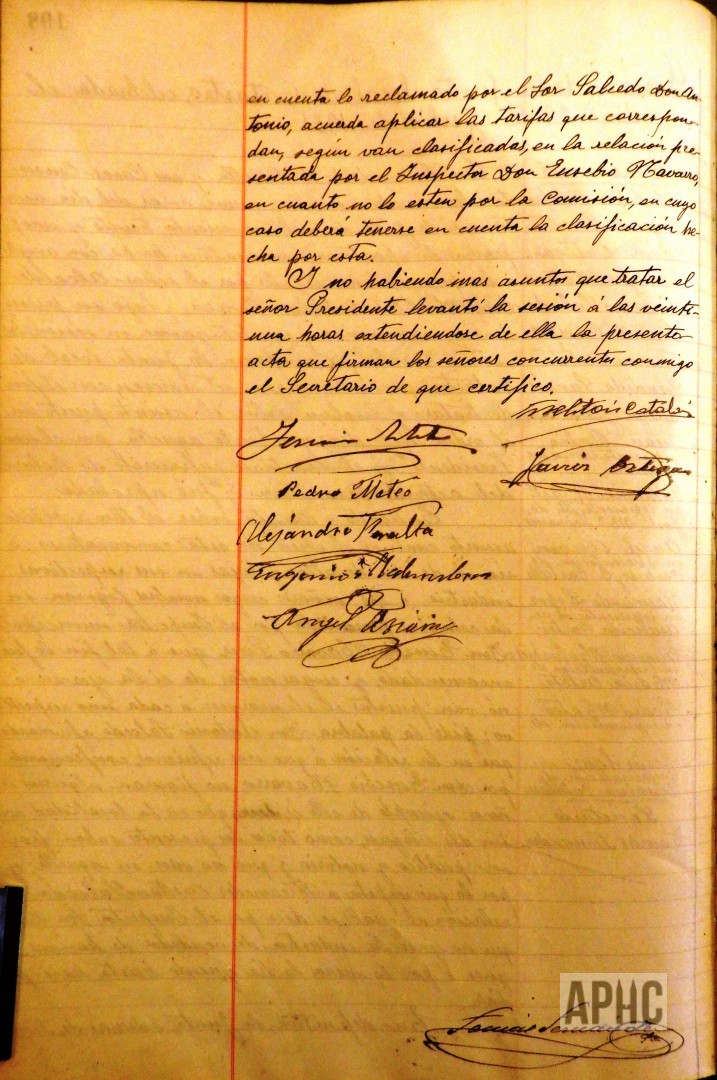 en cuenta lo reclamado por el Sor Salcedo Don An-
tonio, acuerda aplicar las tarifas que correspon-
dan, según van clasificadas, en la relación pre-
sentada por el Inspector Don Eusebio Navarro,
en cuanto no lo esten por la Comisión, en cuyo
caso deberá tenerse en cuenta la clasificación he-
cha por esta.
Y no habiendo mas asuntos que tratar el
señor Presidente levantó la sesión á las veinti-
una horas extendiendose de ella la presente
acta que firman los señores concurrentes conmigo
el Secretario de que certifico.
Meliton Catalán
Javier
Pedro Mateo
Alejandro Peralta
Eugenio
Angel
APHC
Tomás